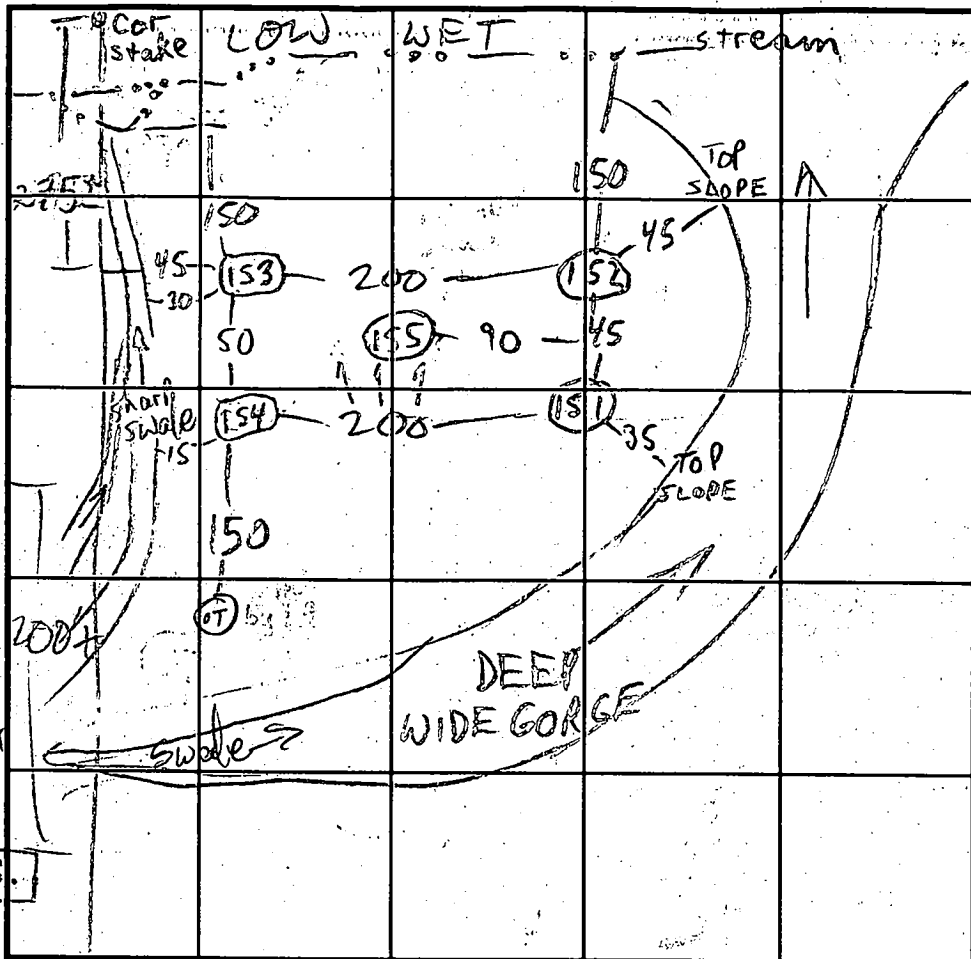 Cor stake
LOW WET stream
150
TOP SLOPE
150
45
45
153
200
152
30
155
90
45
50
sharp swale
154
200
151
15
35
TOP SLOPE
150
200+
OT
DEEP
WIDE GORGE
Swale